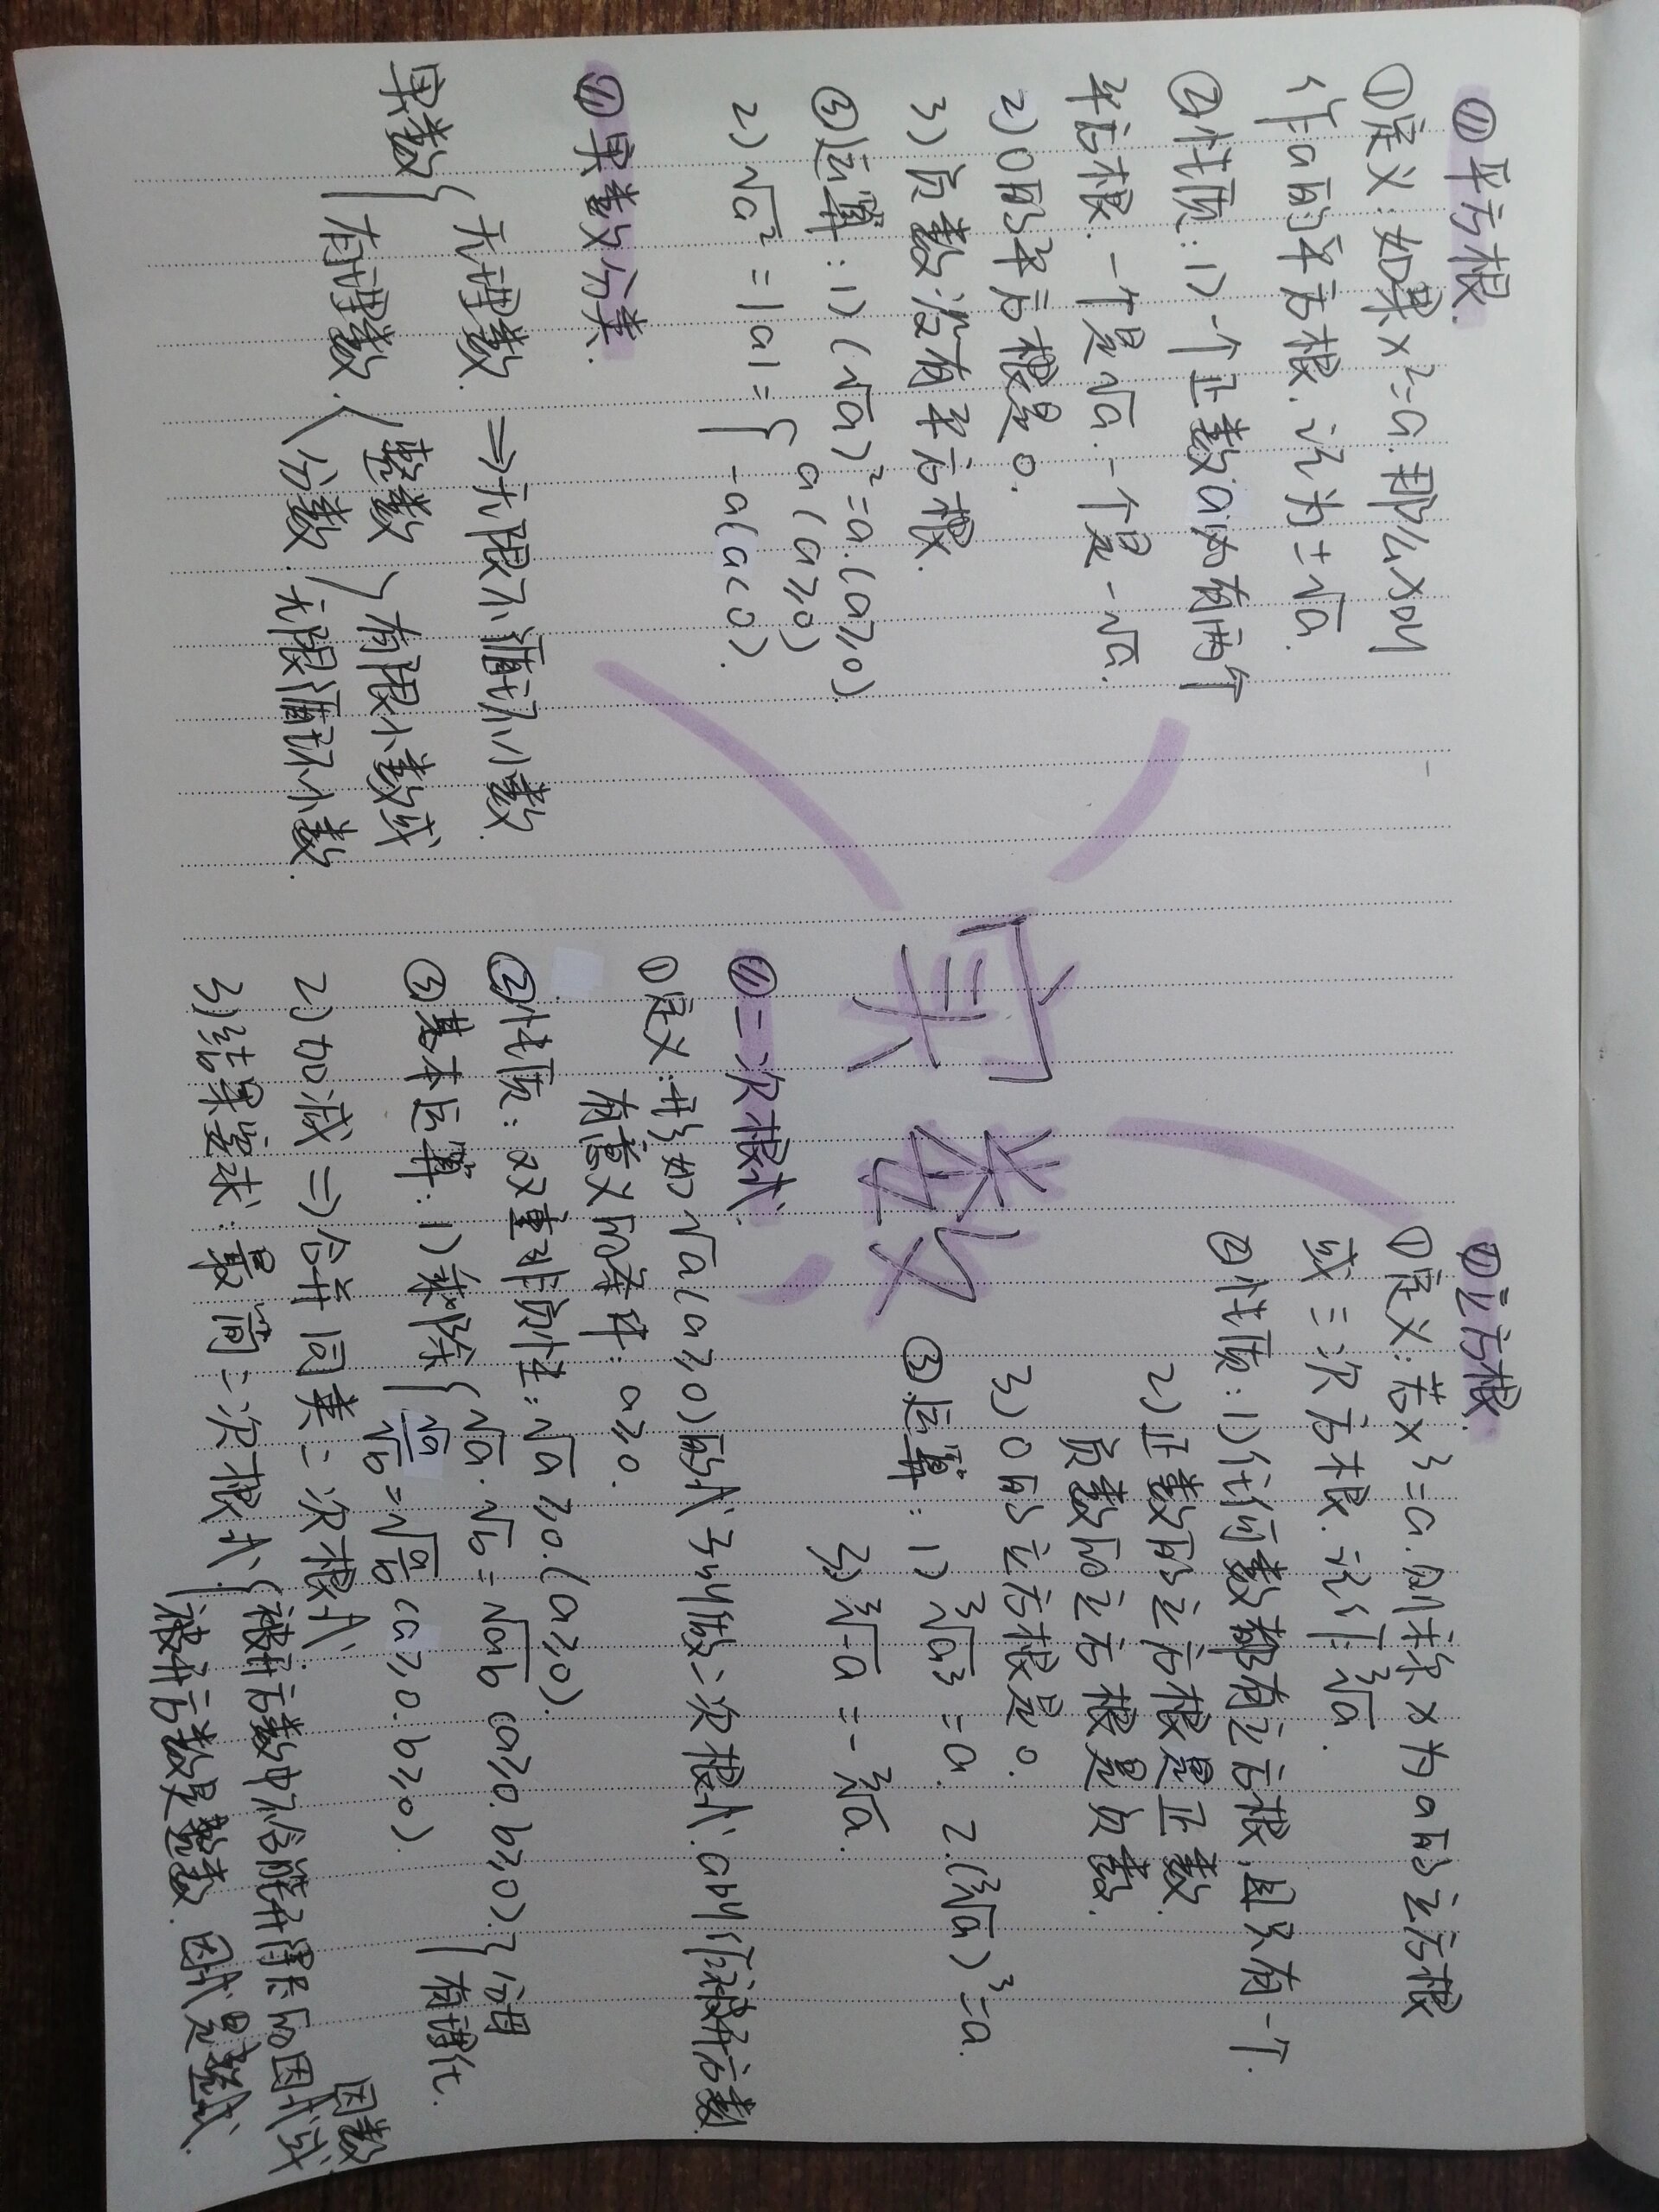 (1) 平方根.
①定义：如果x²=a.那么x叫
作a的平方根.记为±√a.
②性质：1) 一个正数a必有两个
平方根.一个是√a.一个是-√a.
2) 0的平方根是0.
3) 负数没有平方根.
③运算：1) (√a)²=a.(a≥0).
2) √a²=|a|={ a(a≥0)
-a(a<0).
(1) 实数分类.
实数{ 无理数. ⇒无限不循环小数.
有理数.〈 整数 } 有限小数或
分数. 无限循环小数.
实数
(1) 立方根.
①定义：若x³=a.则称x为a的立方根
或三次方根.记作：³√a.
②性质：1)任何数都有立方根.且只有一个.
2)正数的立方根是正数.
负数的立方根是负数.
3) 0的立方根是0.
③运算：1) ³√a³=a. 2.(³√a)³=a.
3) ³√-a=-³√a.
(1) 二次根式.
①定义：形如√a(a≥0)的式子叫做二次根式.a叫作被开方数
有意义的条件：a≥0.
②性质：双重非负性：√a≥0.(a≥0).
③基本运算：1)乘除{ √a·√b=√ab (a≥0.b≥0). } 分母
√a/√b=√a/b (a≥0.b≥0). 有理化.
2)加减⇒合并同类二次根式.
3)结果要求：最简二次根式.{ 被开方数中不含能开得尽的因式或因数
被开方数是整数.因式是整式.